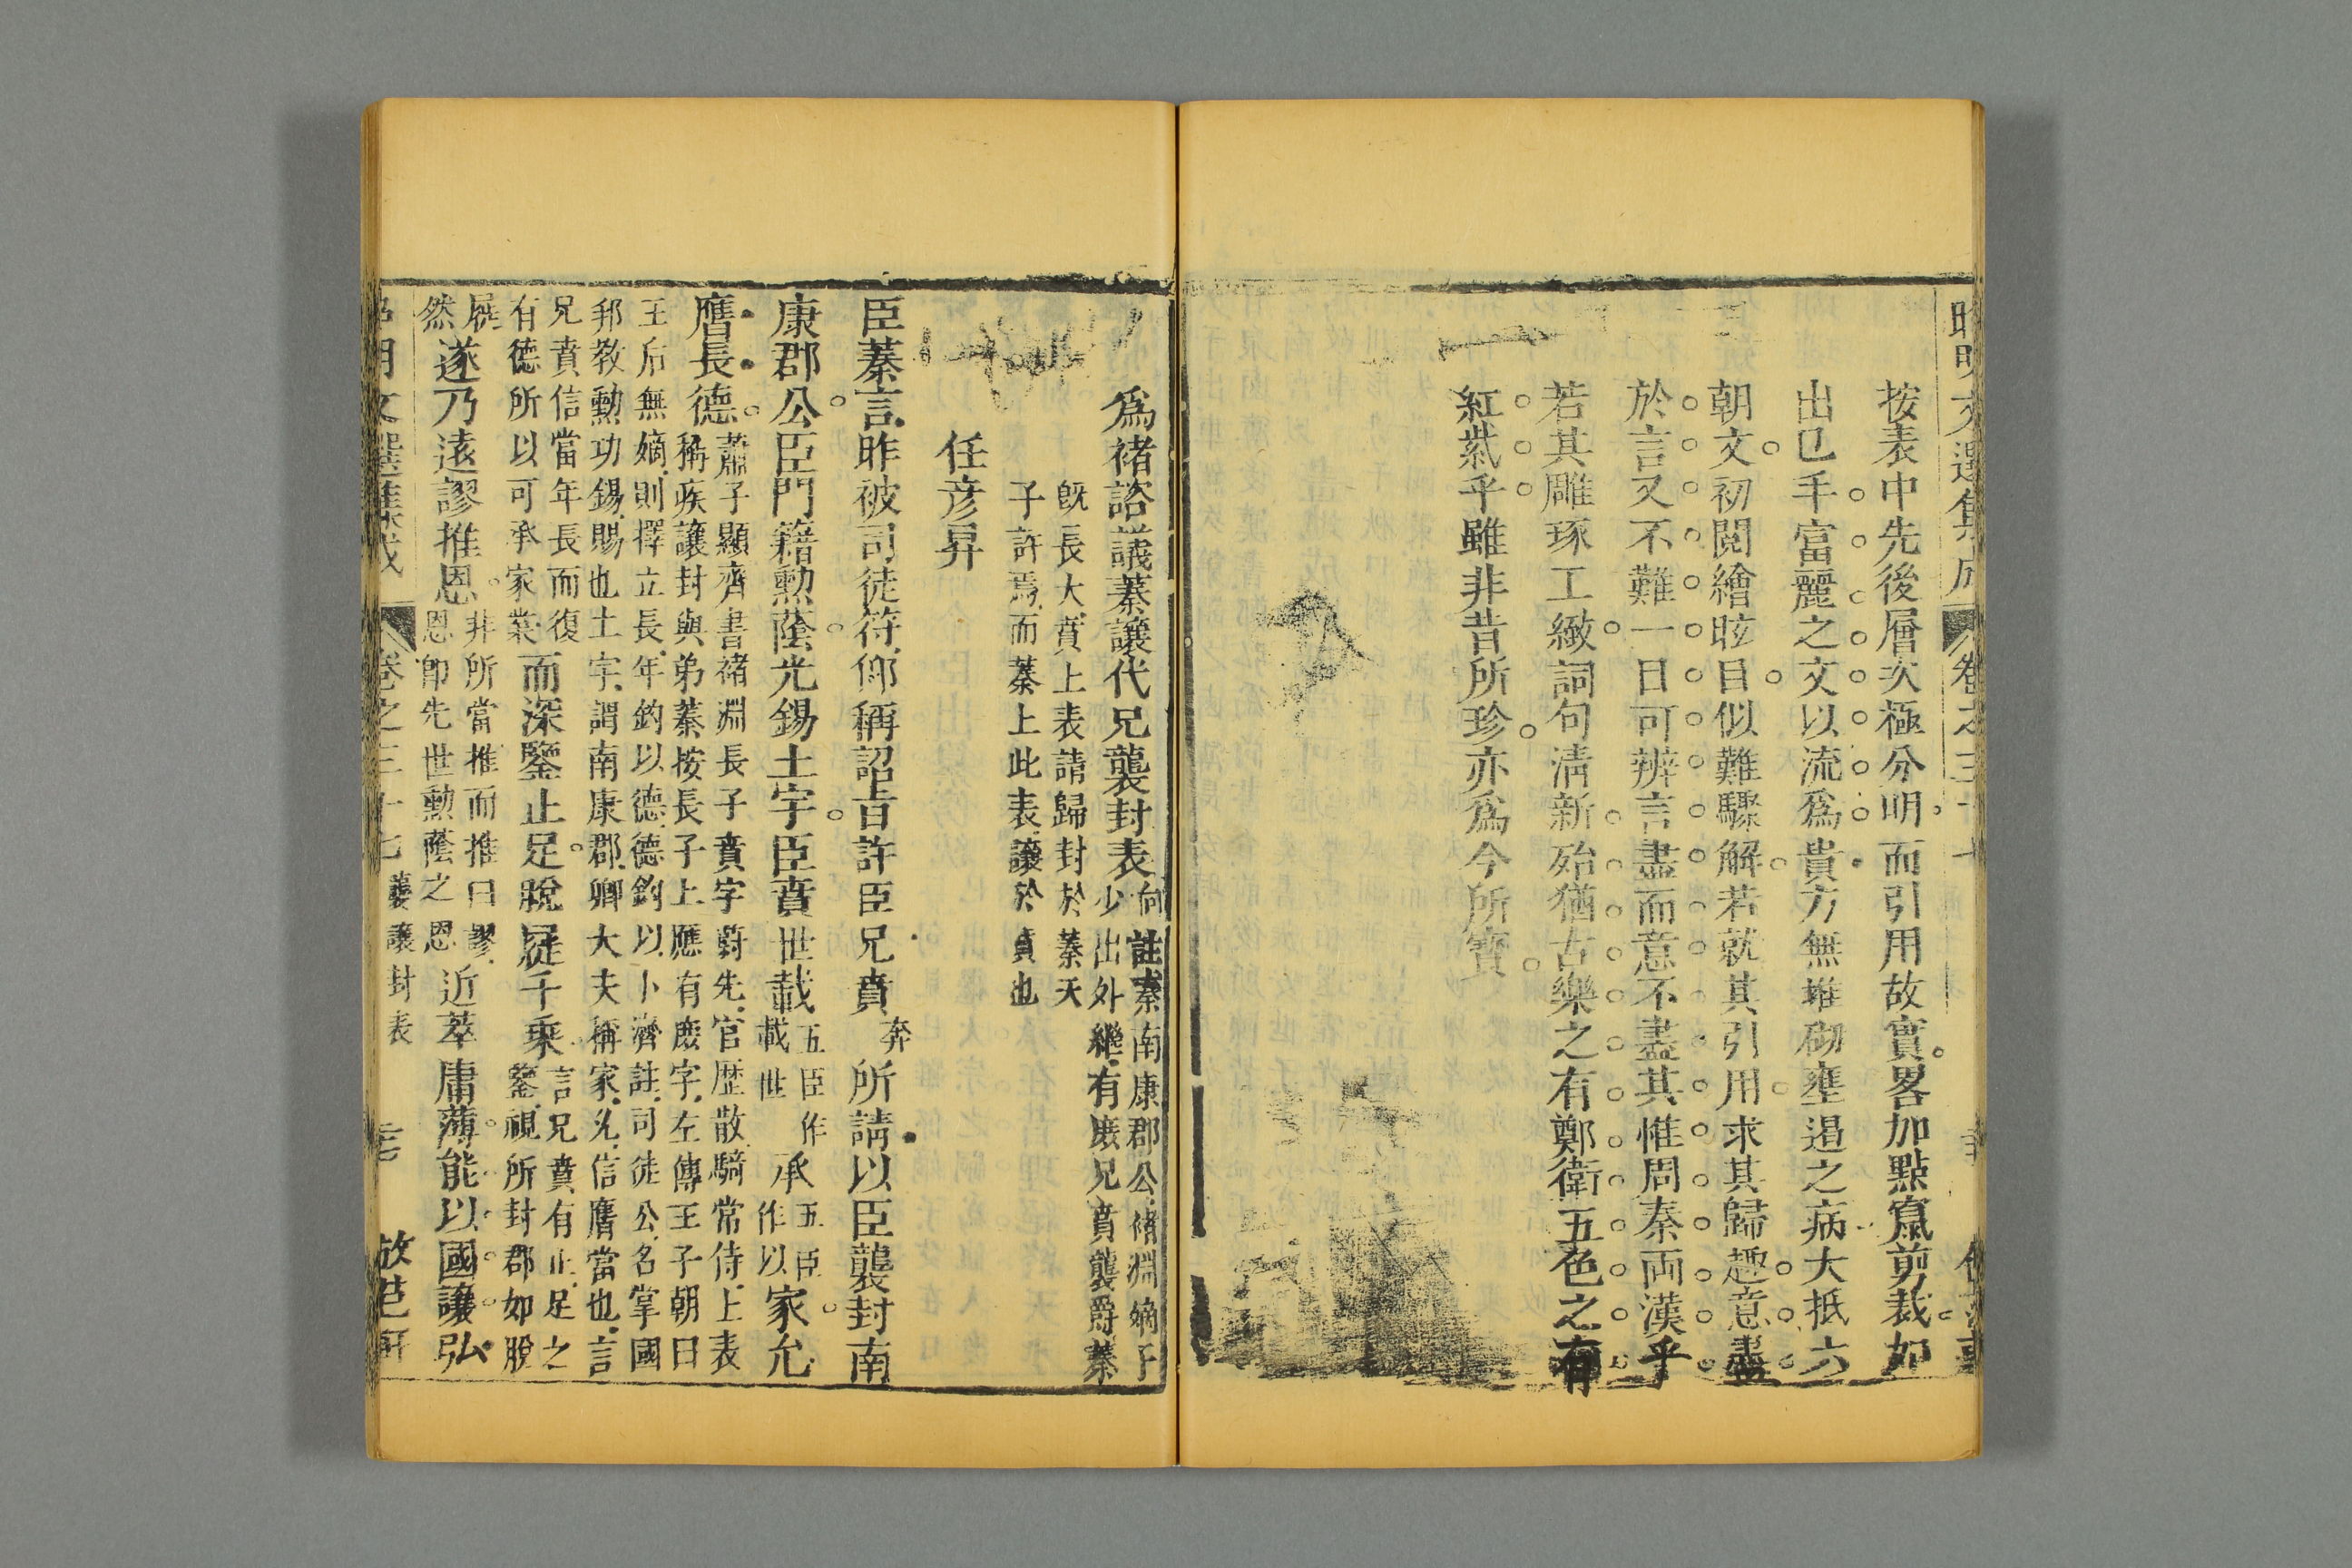 昭明文選集成 卷之三十七
按表中先後層次極分明而引用故實畧加點竄剪裁如
出已手富麗之文以流爲貴方無堆砌壅遏之病大抵六
朝文初閱繪眩目似難驟解若就其引用求其歸趣意盡
於言又不難一目可辨言盡而意不盡其惟周秦両漢乎
若其雕琢工緻詞句清新殆猶古樂之有鄭衛五色之有
紅紫乎雖非昔所珍亦爲今所寶
爲禇諮議蓁讓代兄襲封表 向註蓁南康郡公禇淵嫡子
少出外繼有庶兄賁襲爵蓁
旣長大賁上表請歸封於蓁天
子許焉而蓁上此表讓於賁也
任彦昇
臣蓁言昨被司徒符仰稱詔旨許臣兄賁 奔 所請以臣襲封南
康郡公臣門籍勲蔭光錫土宇臣賁世載 五臣作載世 承 五臣作以 家允
膺長德 蕭子顯齊書禇淵長子賁字蔚先官歷散騎常侍上表
稱疾讓封與弟蓁按長子上應有庶字左傳王子朝曰
王后無嫡則擇立長年鈞以德德鈞以卜濟註司徒公名掌國
邦教勲功錫賜也土宇謂南康郡卿大夫稱家允信膺當也言
兄賁信當年長而復
有德所以可承家業 而深鑒止足脫屣千乘 言兄賁有止足之
鑒視所封郡如脫
屣
然 遂乃遠謬推恩 非所當推而推曰謬
恩卽先世勲蔭之恩 近萃庸薄能以國讓弘
昭明文選集成 卷之三十七 蓁讓封表 倣芑軒